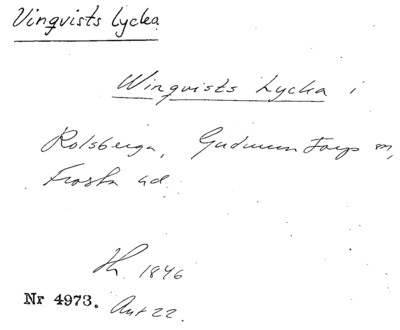 Vinqvists lycka
Winqvists Lycka i
Rolsberga, Gudmuntorps m,
Frosta hd
Th. 1846
Nr 4973. Ant 22.